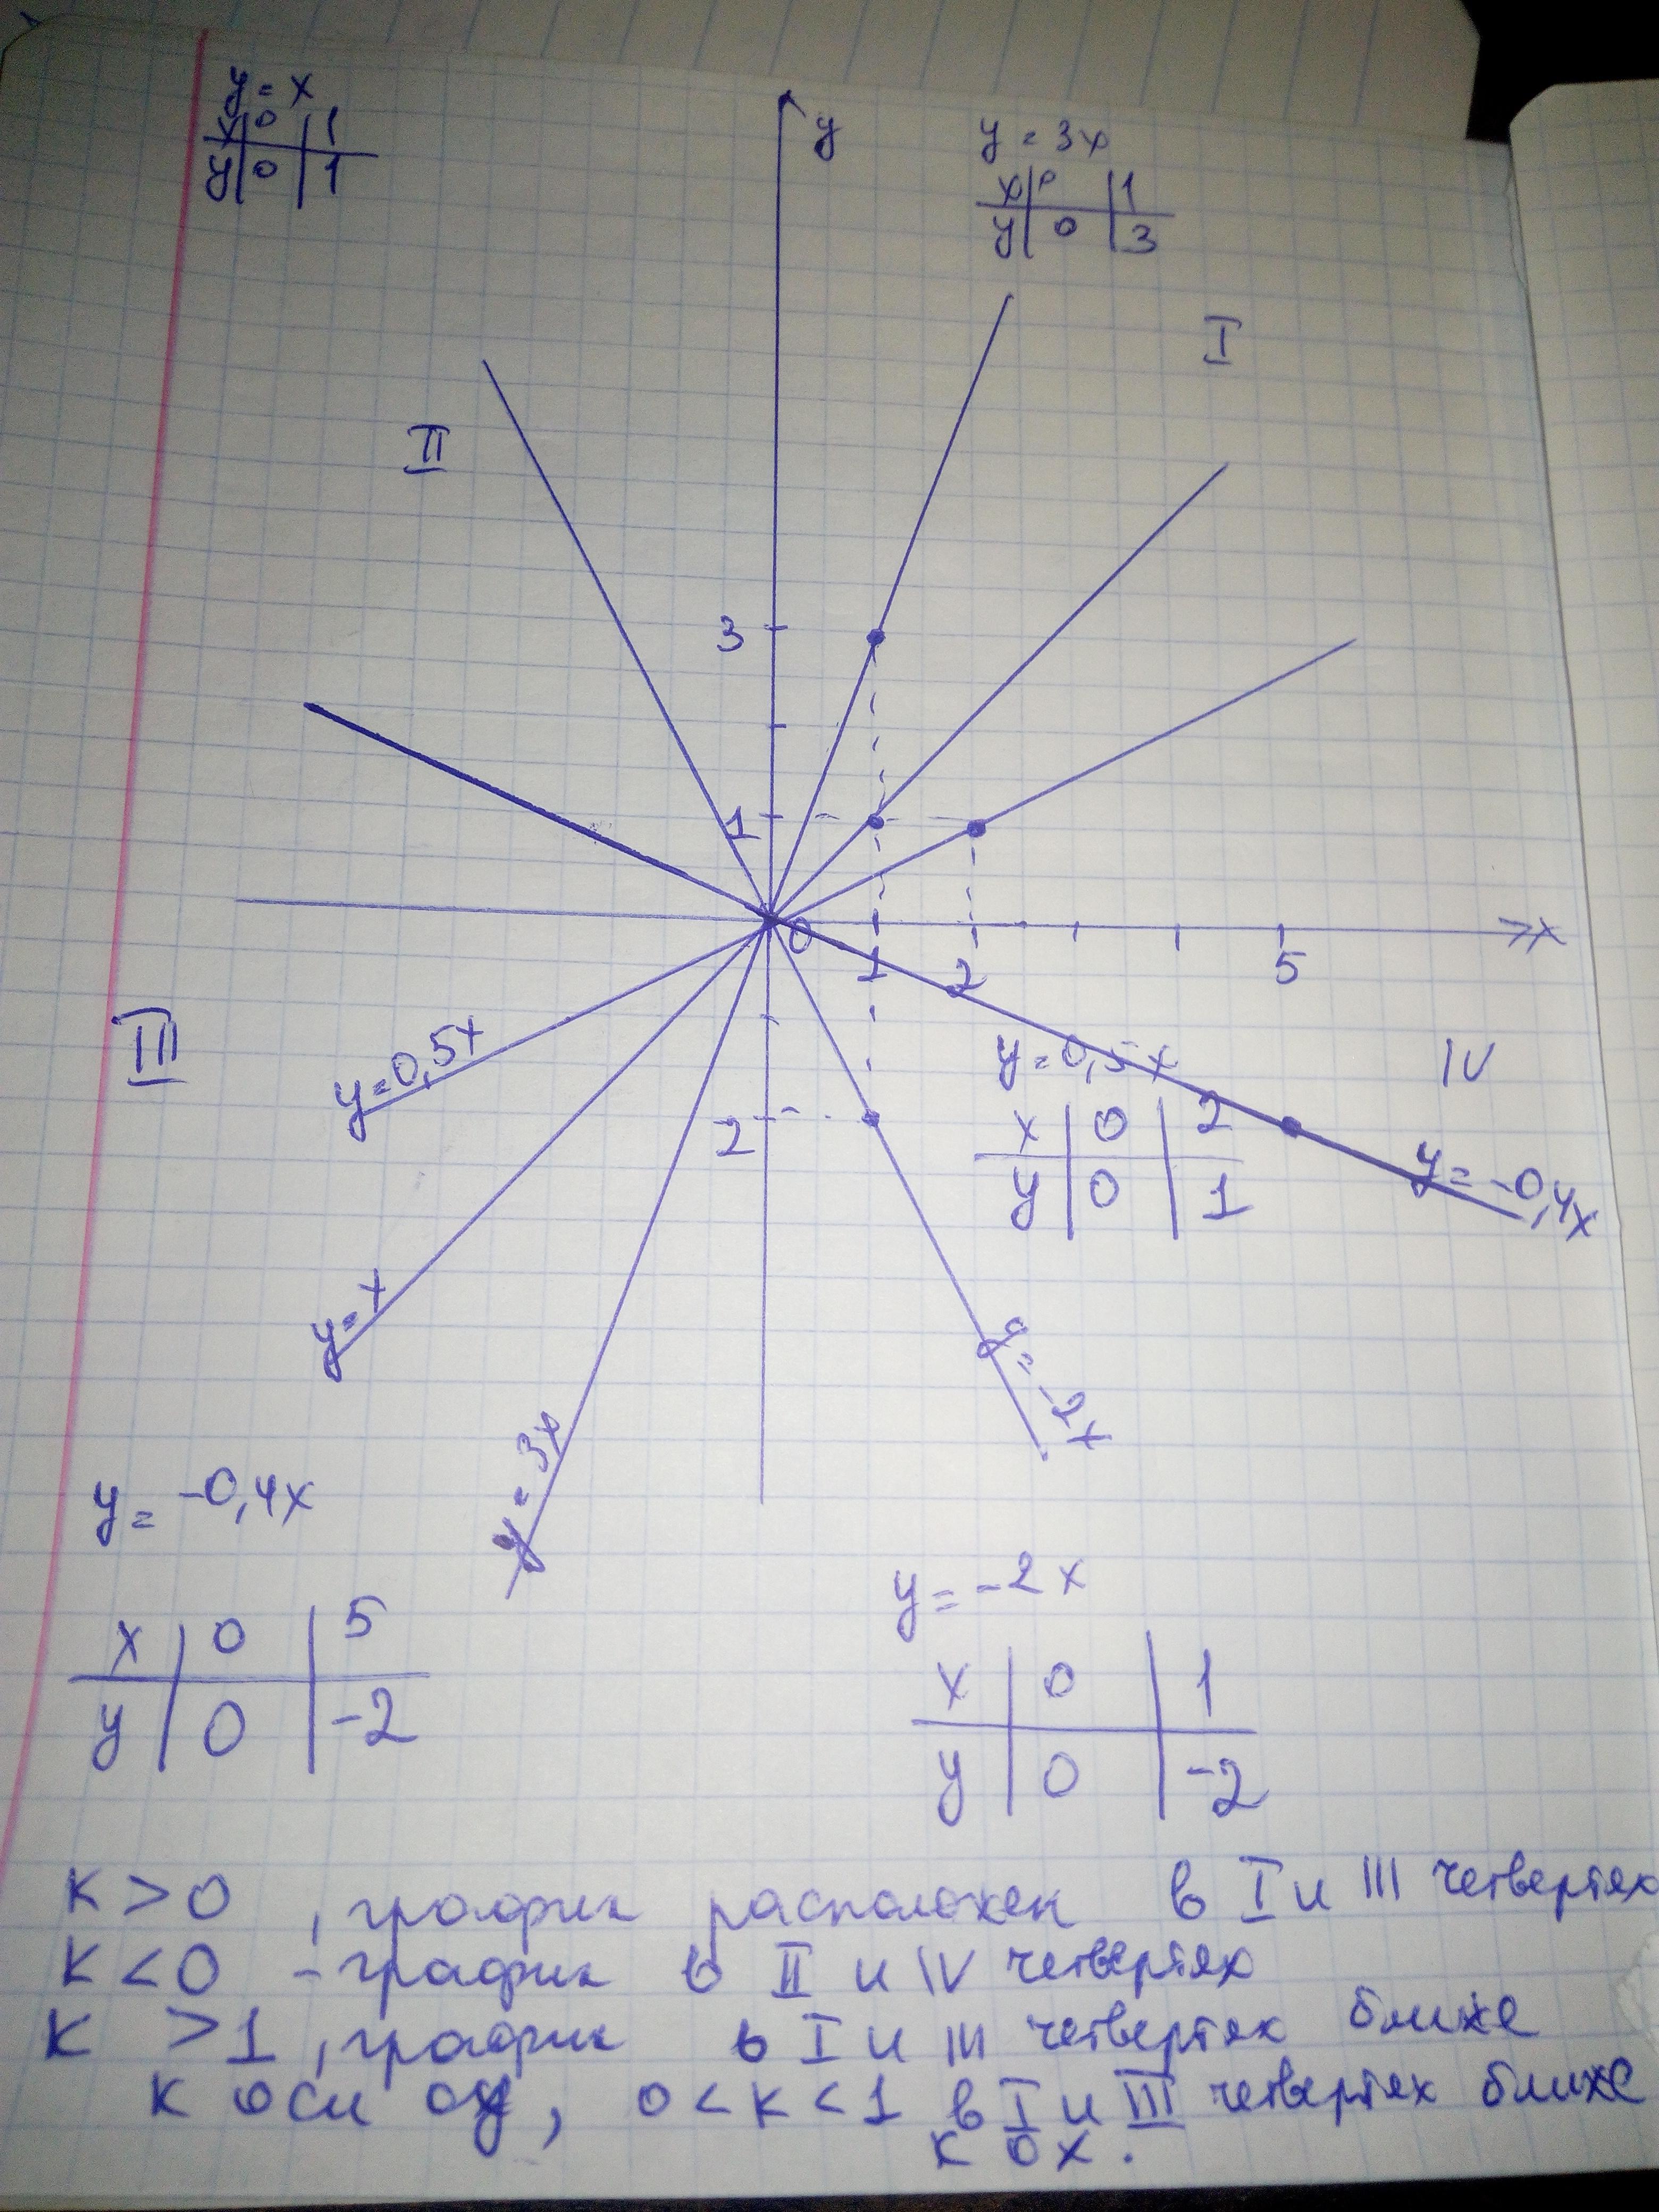 y = x
x | 0 | 1
y | 0 | 1
y
y = 3x
x | 0 | 1
y | 0 | 3
I
II
3
1
0
1
2
5
x
III
y=0,5x
y=0,5x
x | 0 | 2
y | 0 | 1
IV
2
y= -0,4x
y=x
y = -2x
y = 3x
y = -0,4x
x | 0 | 5
y | 0 | -2
y = -2x
x | 0 | 1
y | 0 | -2
к > 0 , график расположен в I и III четвертях
к < 0 - график в II и IV четвертях
к > 1 , график в I и III четвертях ближе
к оси оу, 0 < к < 1 в I и III четвертях ближе
к ох.